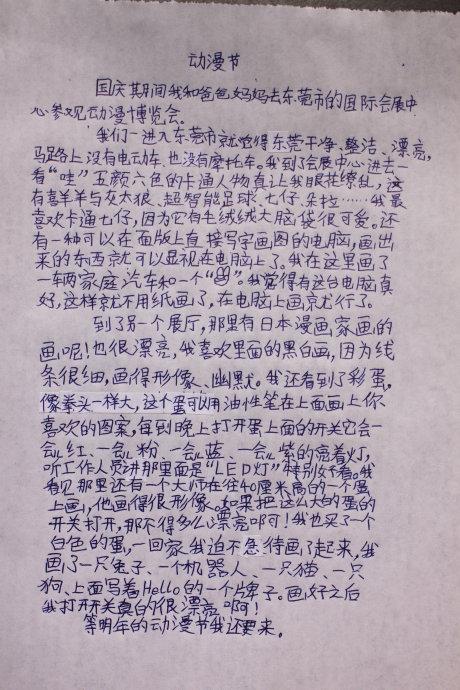 动漫节
国庆期间我和爸爸妈妈去东莞市的国际会展中
心参观动漫博览会。
我们一进入东莞市就觉得东莞干净、整洁、漂亮,
马路上没有电动车也没有摩托车。我到了会展中心进去一
看“哇”五颜六色的卡通人物真让我眼花缭乱,这
有喜羊羊与灰太狼、超智能足球、七仔、朵拉……我最
喜欢卡通七仔,因为它有毛绒绒大脑袋很可爱。还
有一种可以在面版上直接写字画图的电脑,画出
来的东西就可以显视在电脑上了。我在这里画了
一辆家庭汽车和一个“”。我觉得有这台电脑真
好,这样就不用纸画了,在电脑上画就行了。
到了另一个展厅,那里有日本漫画家画的
画呢!也很漂亮,我喜欢里面的黑白画,因为线
条很细,画得形像、幽默。我还看到了彩蛋,
像拳头一样大,这个蛋可以用油性笔在上面画上你
喜欢的图案,每到晚上打开蛋上面的开关它会一
会儿红、一会儿粉、一会儿蓝、一会儿紫的亮着灯,
听工作人员讲那里面是“LED灯”特别好看。我
看见那里还有一个大师在往40厘米高的一个蛋
上画,他画得很形像。如果把这么大的蛋的
开关打开,那不得多么漂亮啊可!我也买了一个
白色的蛋,一回家我迫不急待画了起来,我
画了一只兔子、一个机器人、一只猫、一只
狗、上面写着Hello的一个牌子。画好之后
我打开开关真的很漂亮啊!
等明年的动漫节我还要来。